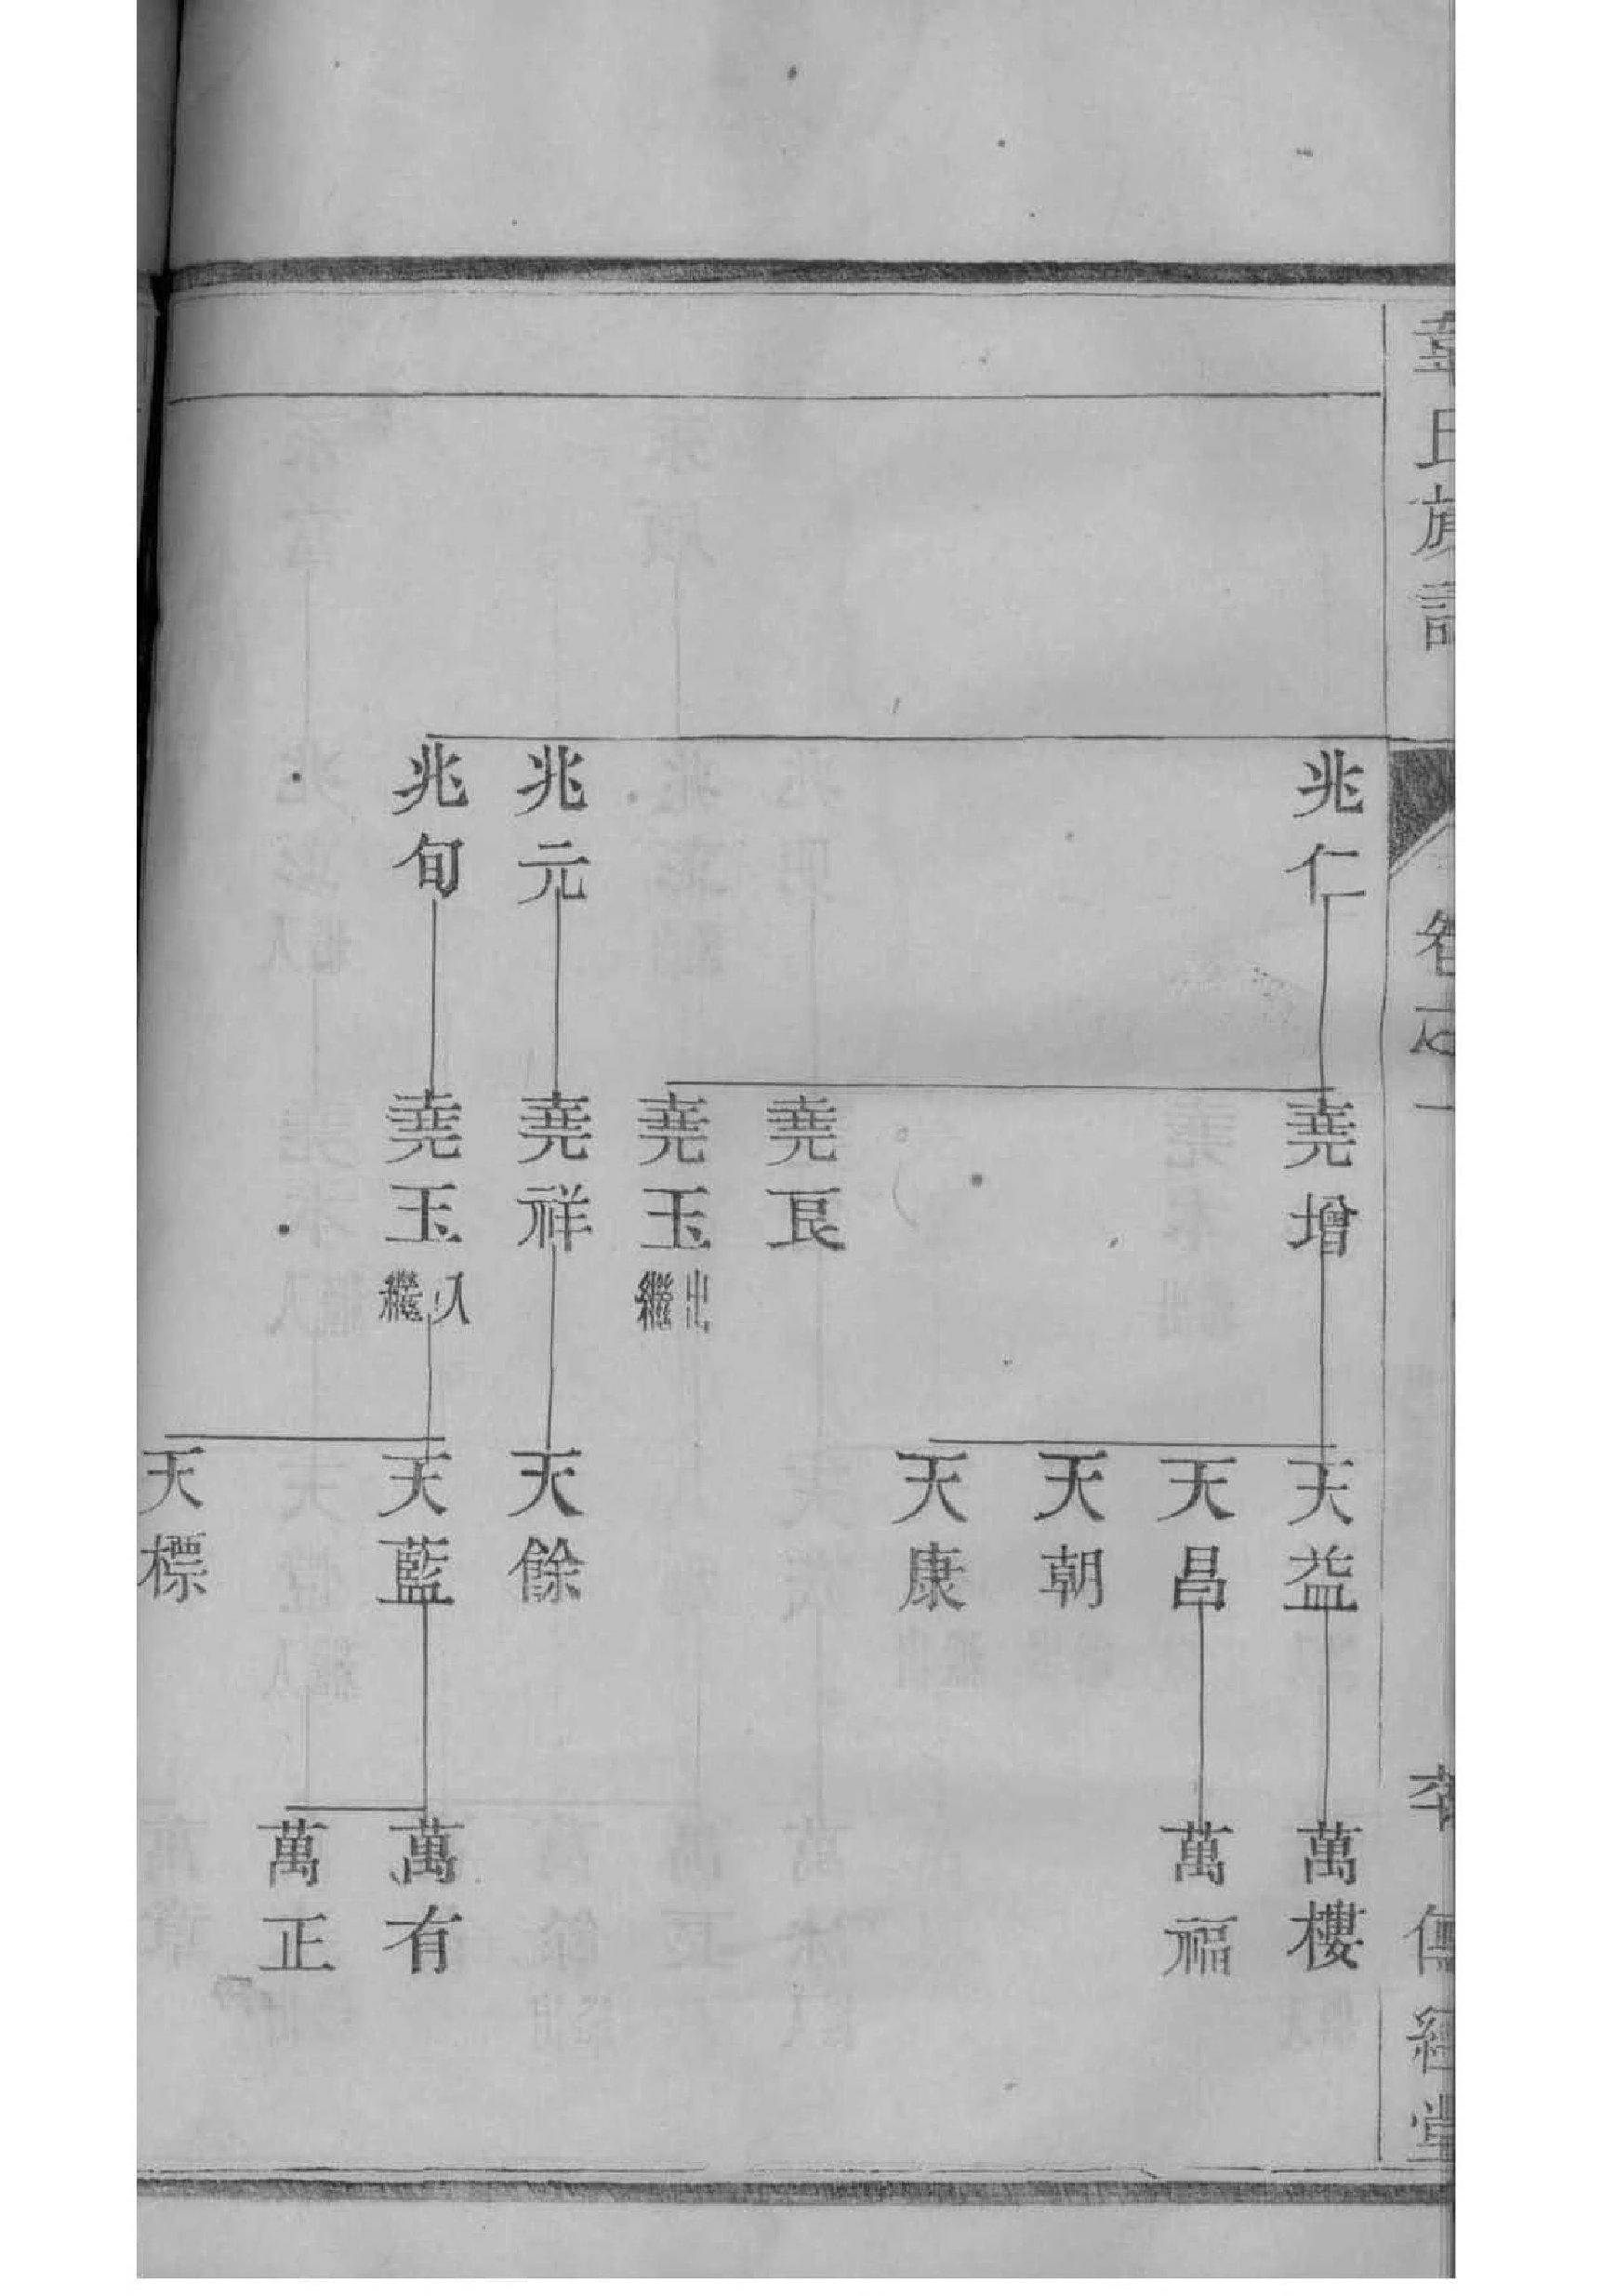 韋氏族譜
卷之一
傳經堂
兆仁
兆元
兆旬
堯增
堯艮
堯玉出繼
堯祥
堯玉入繼
天益
天昌
天朝
天康
天餘
天藍
天標
萬樓
萬福
萬有
萬正